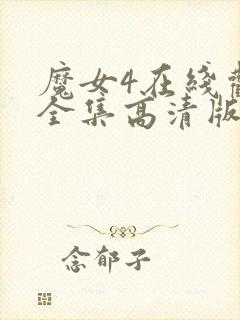 魔女4在线
全集高清版
念郁子